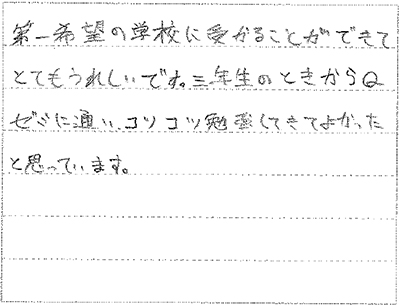 第一希望の学校に受かることができて
とてもうれしいです。三年生のときからQ
ゼミに通い、コツコツ勉強してきてよかった
と思っています。